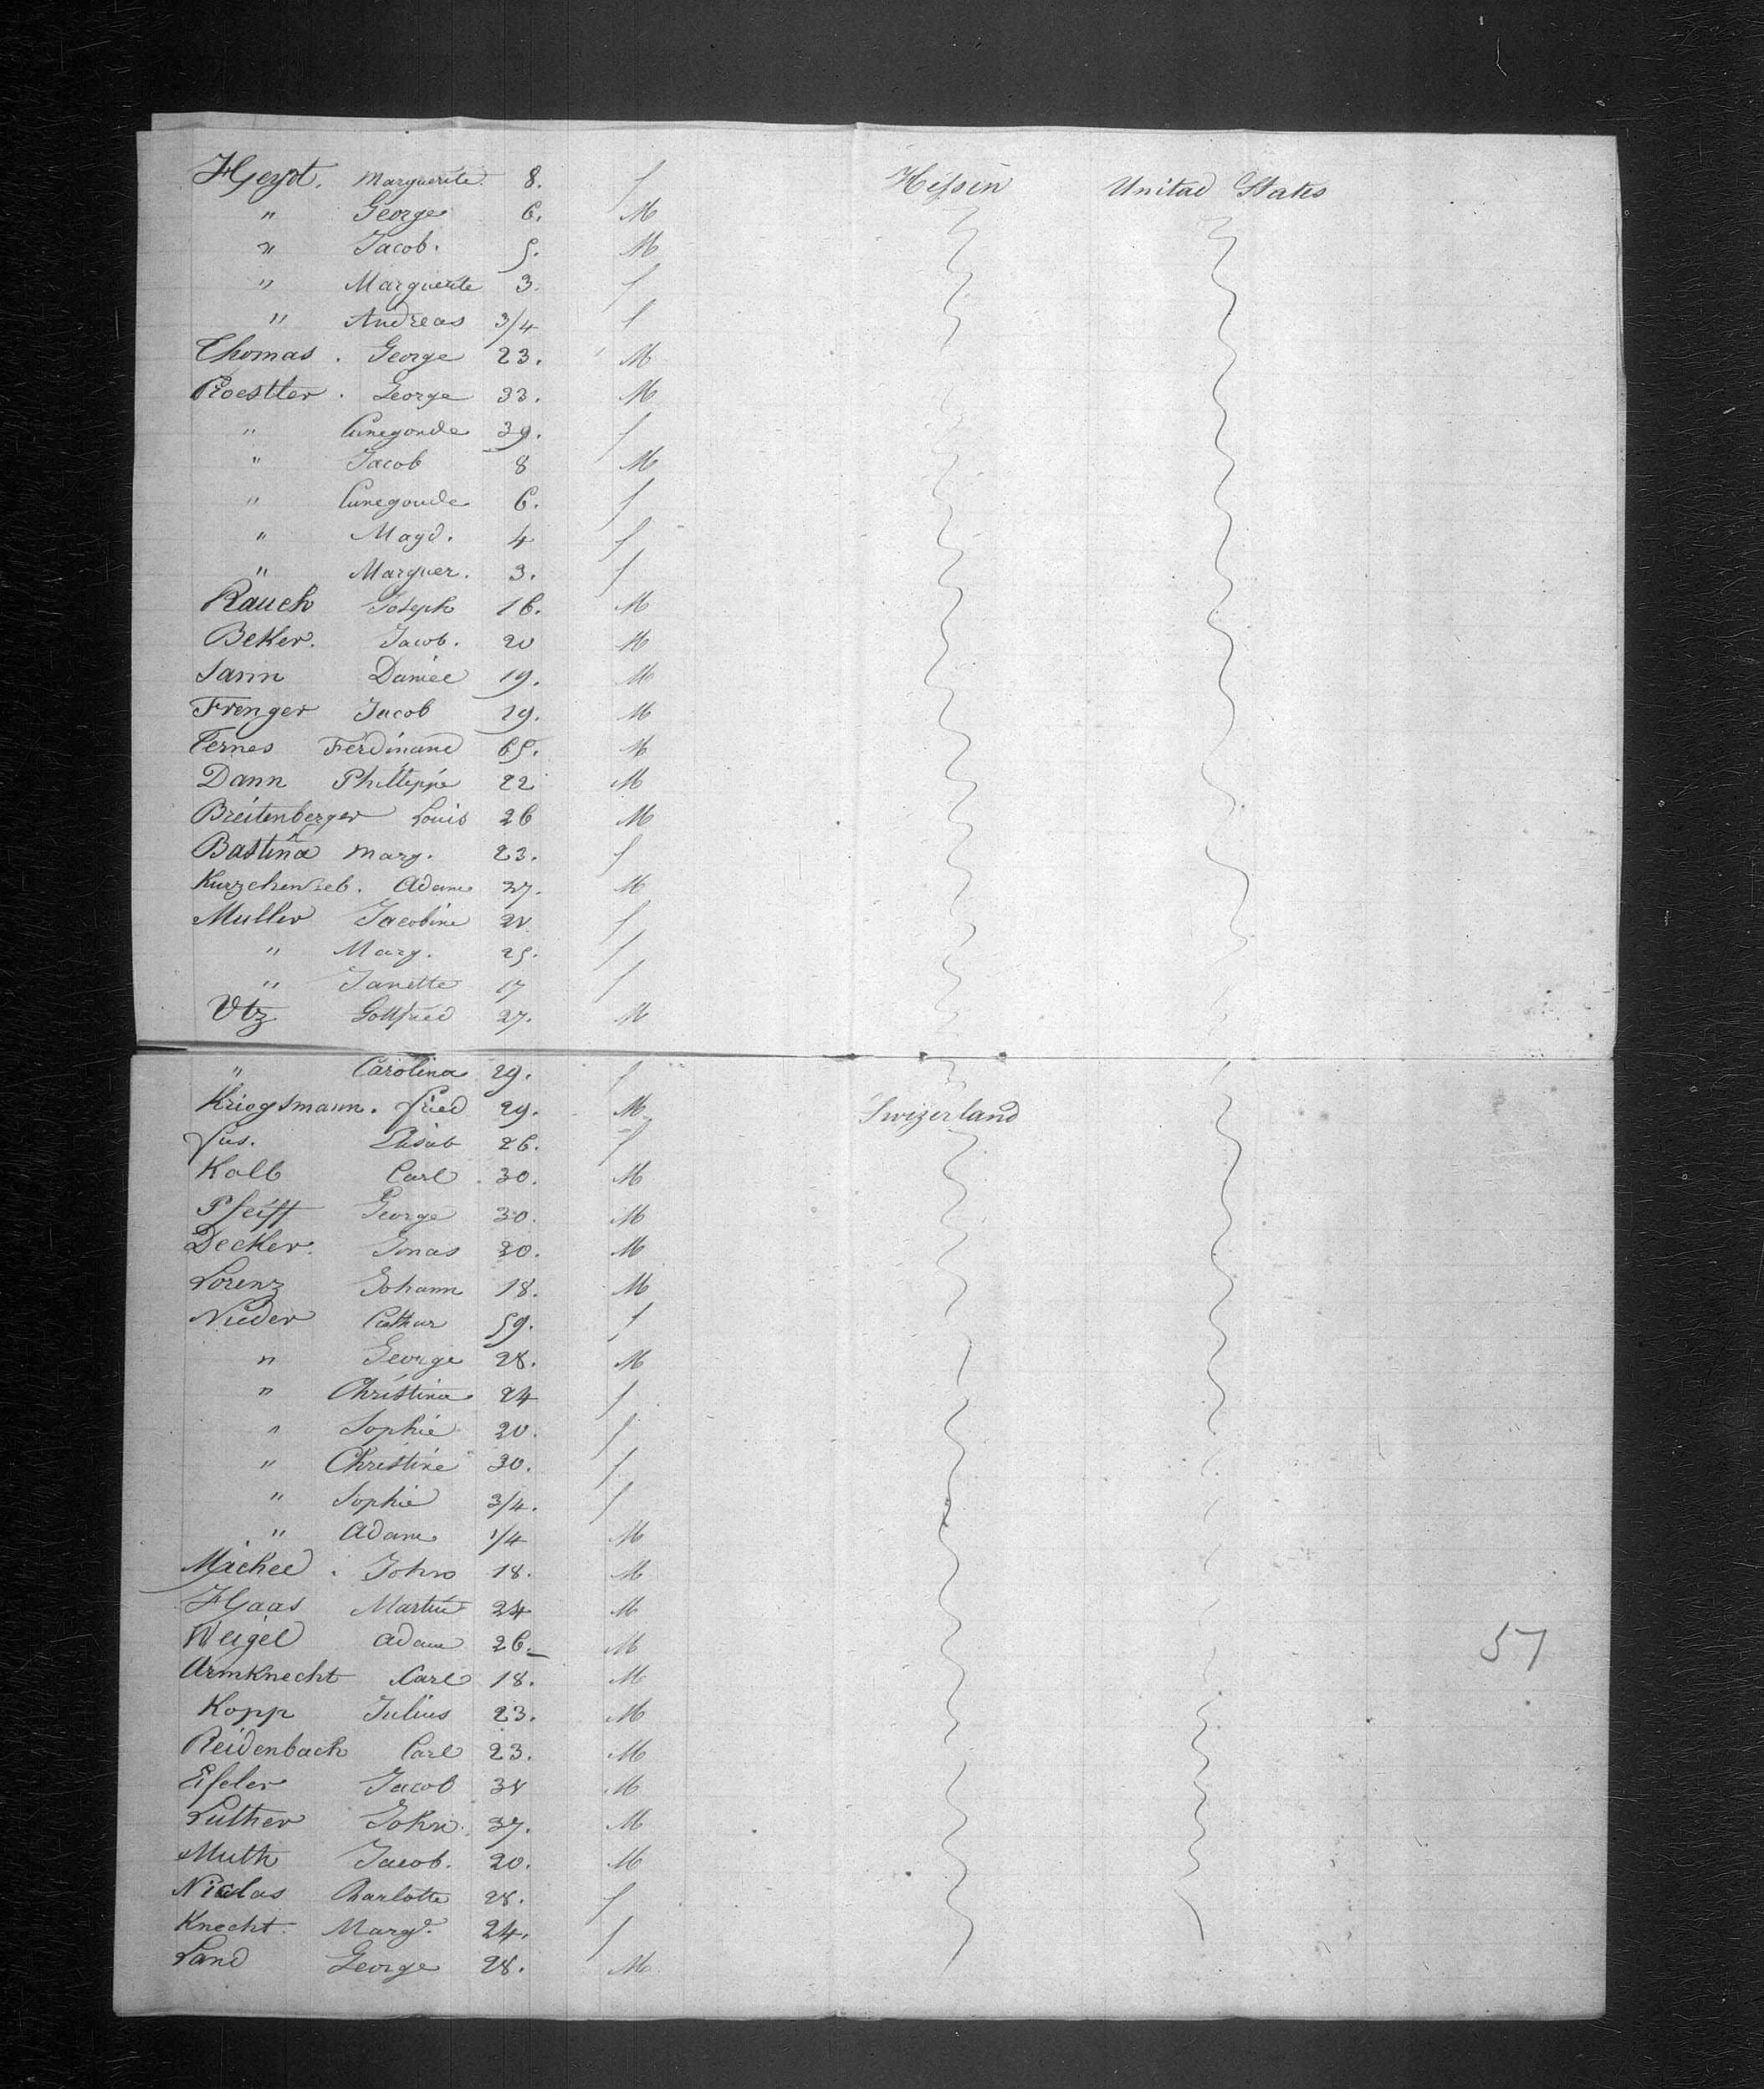 Heydt. Marguerite. 8. f Hessen Unitad States
" George 6. M
" Jacob. 5. M
" Marguerite 3. f
" Andreas 3/4 f
Thomas. George 23. M
Roestler. George 33. M
" Cunegonde 39. f
" Jacob 8 M
" Cunegonde 6. f
" Magd. 4 f
" Marguer. 3. f
Rauch Joseph 16. M
Beker. Jacob. 20 M
Jann Daniel 19. M
Frenger Jacob 29. M
Ternes Ferdinand 65. M
Dann Philleppe 22 M
Breitenberger Louis 26 M
Bastina Marg. 23. f
Adam 37. M
Muller Jacobine 21 f
" Marg. 25. f
" Janette 17 f
Utz Gottfried 27. M
" Carolina 29. f
Kriegsmann. fried 29. M Swizerland
fus. 26. f
Kalb Carl 30. M
Pfeiff George 30. M
Decker. Jonas 30. M
Lorenz Johann 18. M
Nieder Cathar 59. f
" George 28. M
" Christina 24 f
" Sophie 20. f
" Christine 30. f
" Sophie 3/4. f
" Adam 1/4 M
Michel. John 18. M
Haas Martin 24 M
Weigel Adam 26. M 57
Armknecht Carl 18. M
Kopp Julius 23. M
Reidenbach Carl 23. M
Jacob 38 M
Luther John. 37. M
Muth Jacob. 20. M
Niclas Charlotte 28. f
Knecht. Margr. 24. f
Land George 28. M